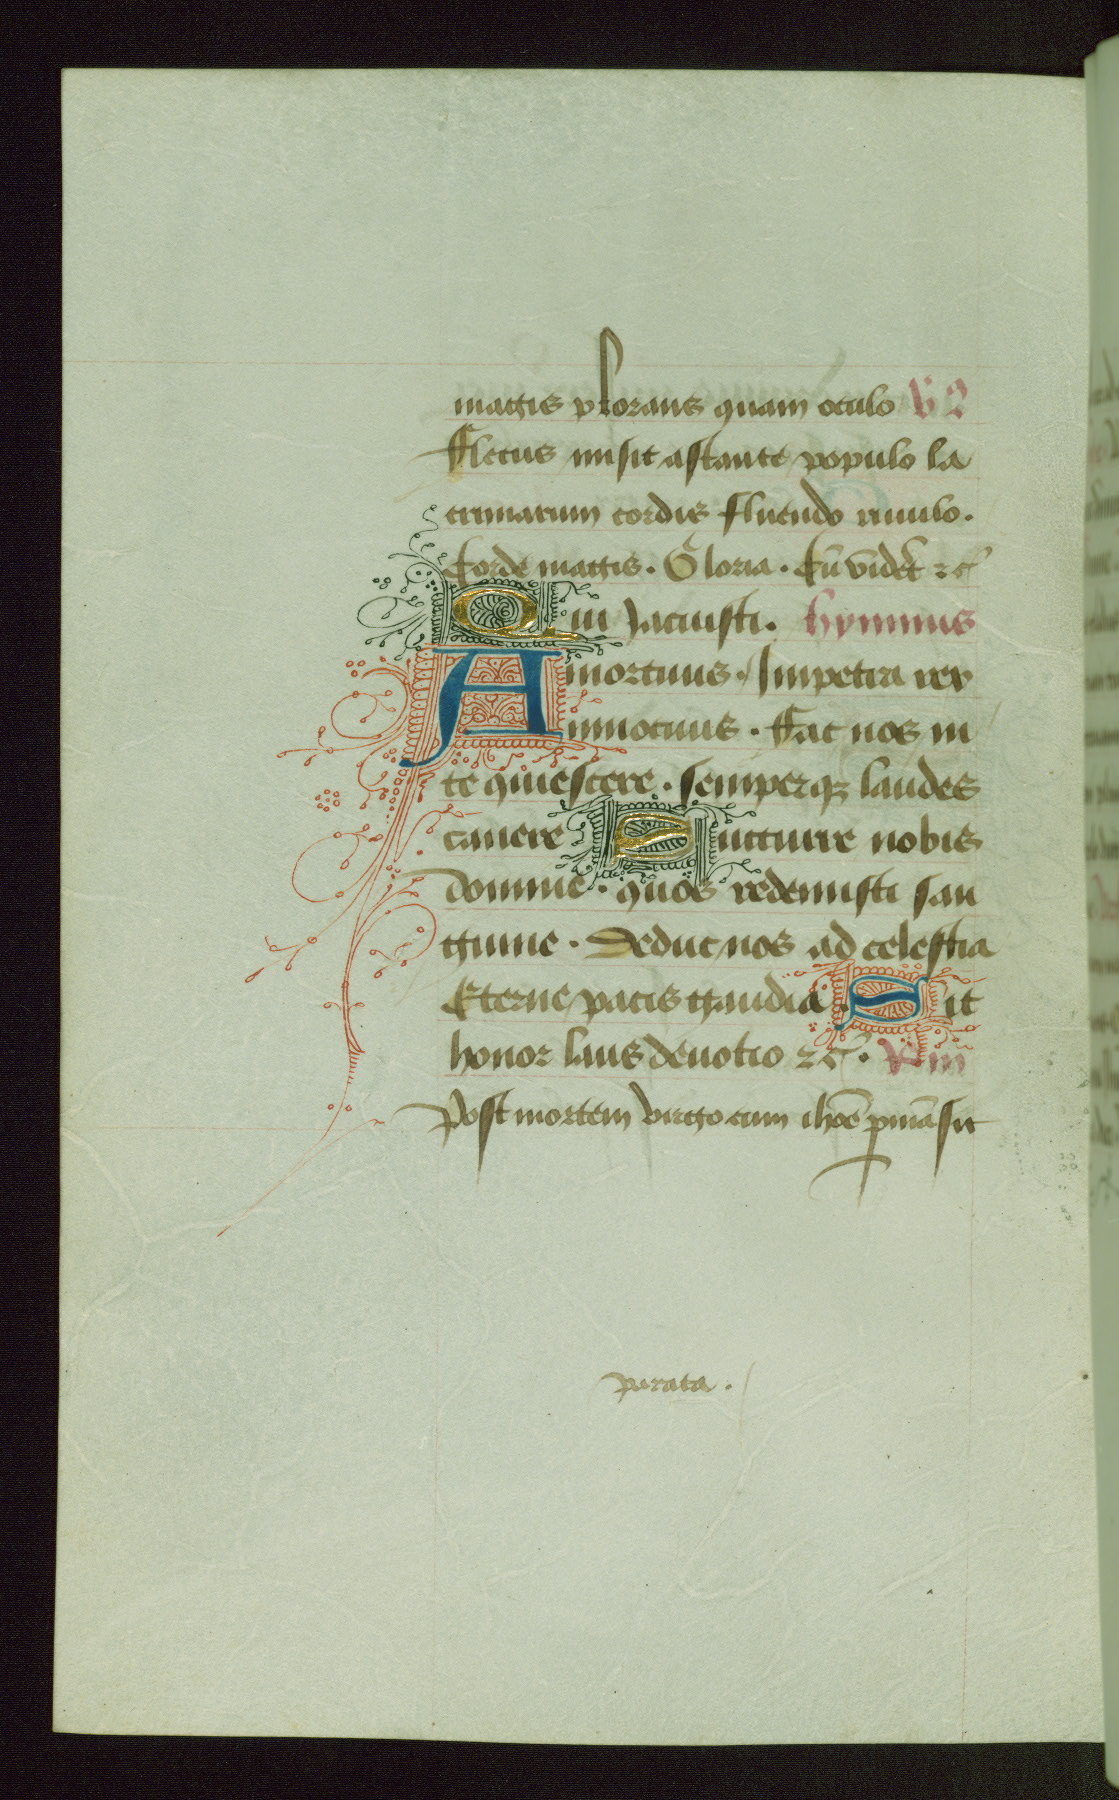 magis plorans quam oculo V͛
Fletus misit astante populo la
crimarum cordis fluendo riuulo.
Corde magis. Gloria. Cũ videt ⁊c̃
Qui iacuisti. hymnus
A mortuus. Impetra rex
innocuus. Fac nos in
te quiescere. semperqꝫ laudes
canere Succurre nobis
domine. quos redemisti san
guine. Deduc nos ad celestia
Eterne pacis gaudia. Sit
honor laus deuotio ⁊c̃.
Post mortem virgo cum ihõe p̱mãsit
parata.